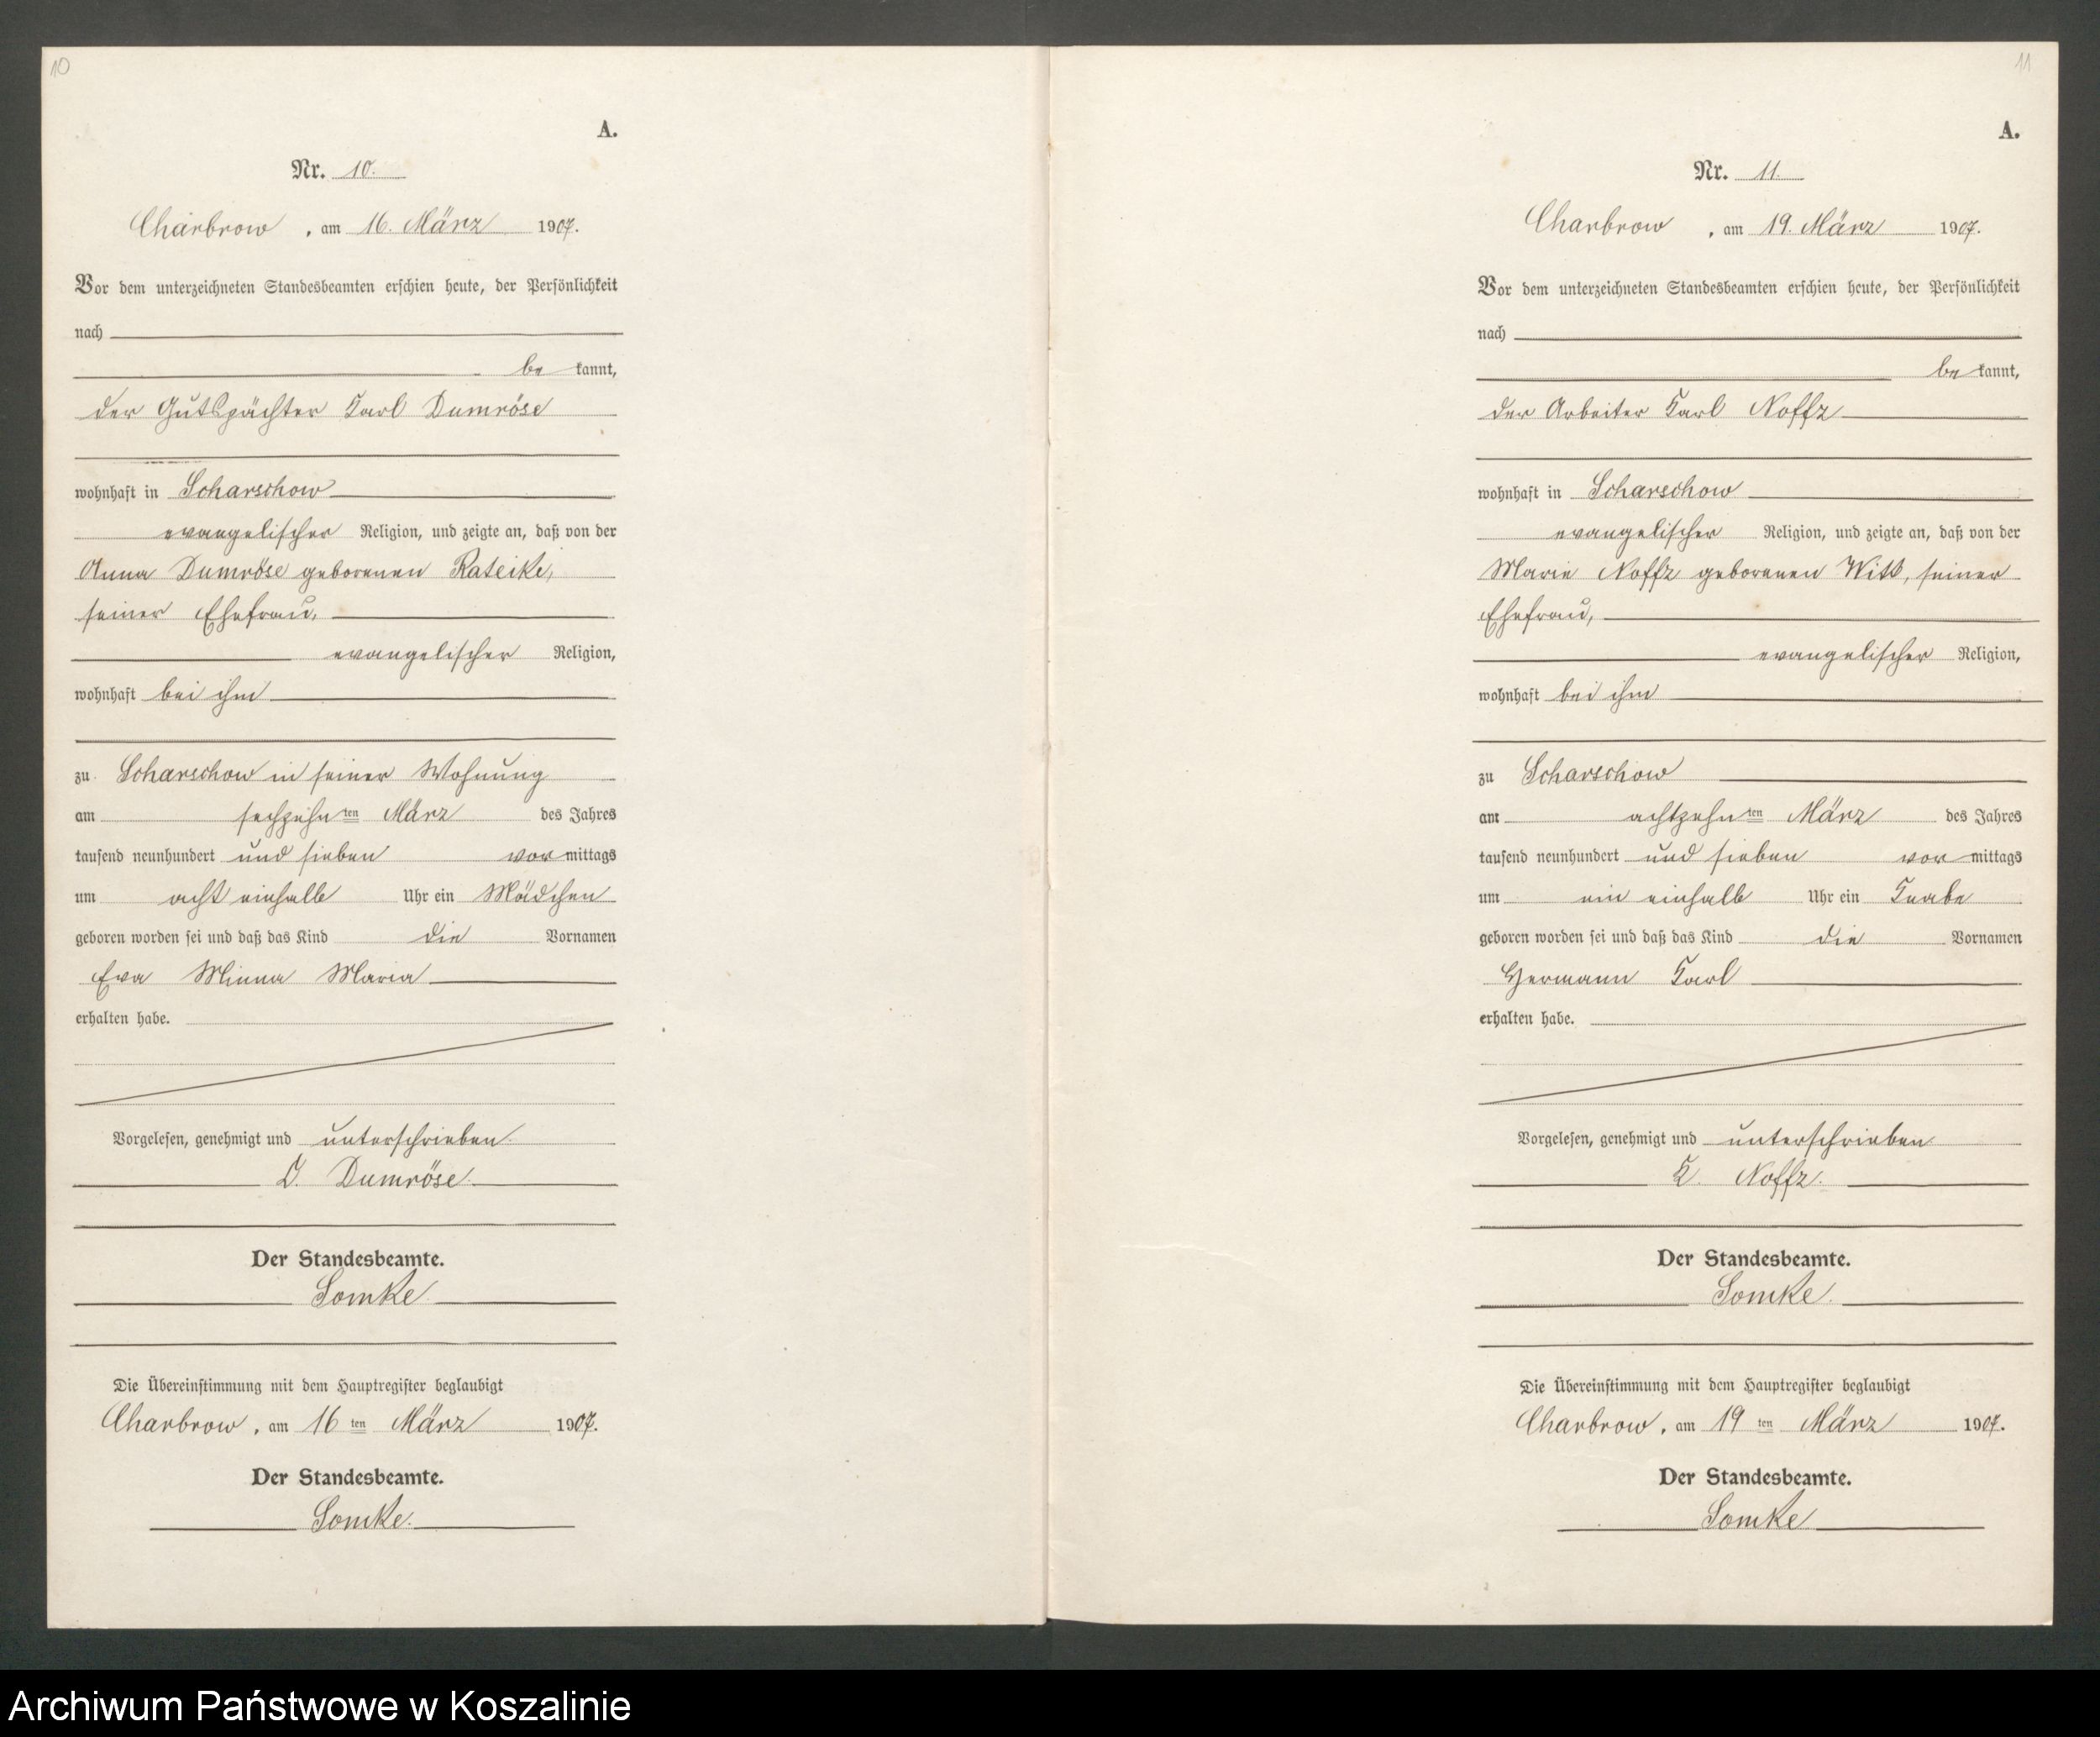 10
A.
Nr. 10.
Charbrow, am 16. März 1907.
Vor dem unterzeichneten Standesbeamten erschien heute, der Persönlichkeit
nach
be kannt,
der Gutspächter Karl Dumröse
wohnhaft in Scharschow
evangelischer Religion, und zeigte an, daß von der
Anna Dumröse geborenen Rateike,
seiner Ehefrau,
evangelischer Religion,
wohnhaft bei ihm
zu Scharschow in seiner Wohnung
am sechzehn ten März des Jahres
tausend neunhundert und sieben vor mittags
um acht einhalb Uhr ein Mädchen
geboren worden sei und daß das Kind die Vornamen
Eva Minna Maria
erhalten habe.
Vorgelesen, genehmigt und unterschrieben
Dumröse.
Der Standesbeamte.
Somke
Die Übereinstimmung mit dem Hauptregister beglaubigt
Charbrow, am 16 ten März 1907.
Der Standesbeamte.
Somke.
11
A.
Nr. 11.
Charbrow, am 19. März 1907.
Vor dem unterzeichneten Standesbeamten erschien heute, der Persönlichkeit
nach
be kannt,
der Arbeiter Karl Noffz
wohnhaft in Scharschow
evangelischer Religion, und zeigte an, daß von der
Marie Noffz geborenen Witt, seiner
Ehefrau,
evangelischer Religion,
wohnhaft bei ihm
zu Scharschow
am achtzehn ten März des Jahres
tausend neunhundert und sieben vor mittags
um ein einhalb Uhr ein Knabe
geboren worden sei und daß das Kind die Vornamen
Hermann Karl
erhalten habe.
Vorgelesen, genehmigt und unterschrieben
K. Noffz.
Der Standesbeamte.
Somke.
Die Übereinstimmung mit dem Hauptregister beglaubigt
Charbrow, am 19 ten März 1907.
Der Standesbeamte.
Somke
Archiwum Państwowe w Koszalinie